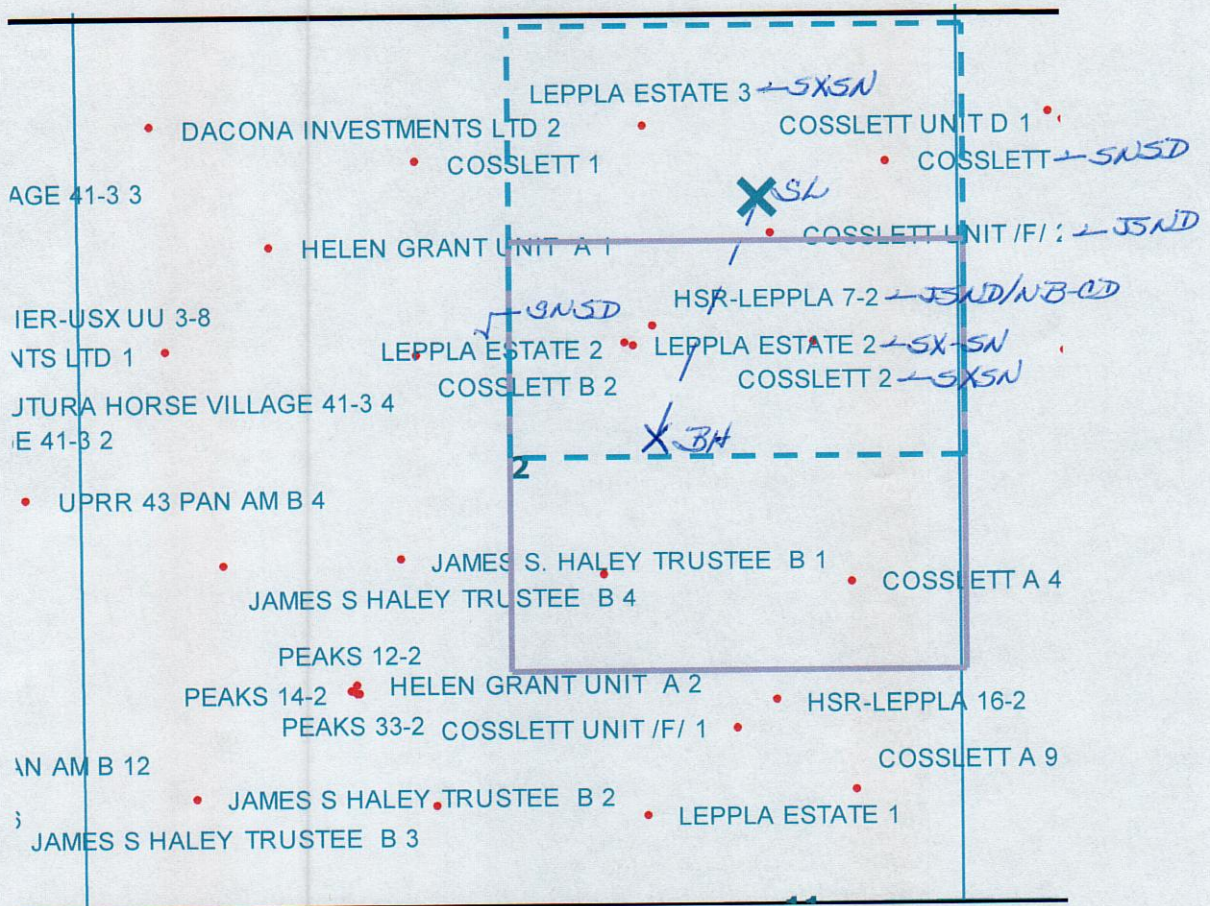 LEPPLA ESTATE 3 - SXSN
DACONA INVESTMENTS LTD 2
COSSLETT UNIT D 1
COSSLETT 1
COSSLETT - SNSD
AGE 41-3 3
SL
COSSLETT UNIT /F/ 2 - JSND
HELEN GRANT UNIT A 1
HSR-LEPPLA 7-2 - JSND/NB-CD
IER-USX UU 3-8
SNSD
NTS LTD 1
LEPPLA ESTATE 2
LEPPLA ESTATE 2 - SX-SN
COSSLETT B 2
COSSLETT 2 - SXSN
UTURA HORSE VILLAGE 41-3 4
E 41-3 2
BH
2
UPRR 43 PAN AM B 4
JAMES S. HALEY TRUSTEE B 1
COSSLETT A 4
JAMES S HALEY TRUSTEE B 4
PEAKS 12-2
PEAKS 14-2
HELEN GRANT UNIT A 2
HSR-LEPPLA 16-2
PEAKS 33-2
COSSLETT UNIT /F/ 1
COSSLETT A 9
AN AM B 12
JAMES S HALEY TRUSTEE B 2
LEPPLA ESTATE 1
JAMES S HALEY TRUSTEE B 3